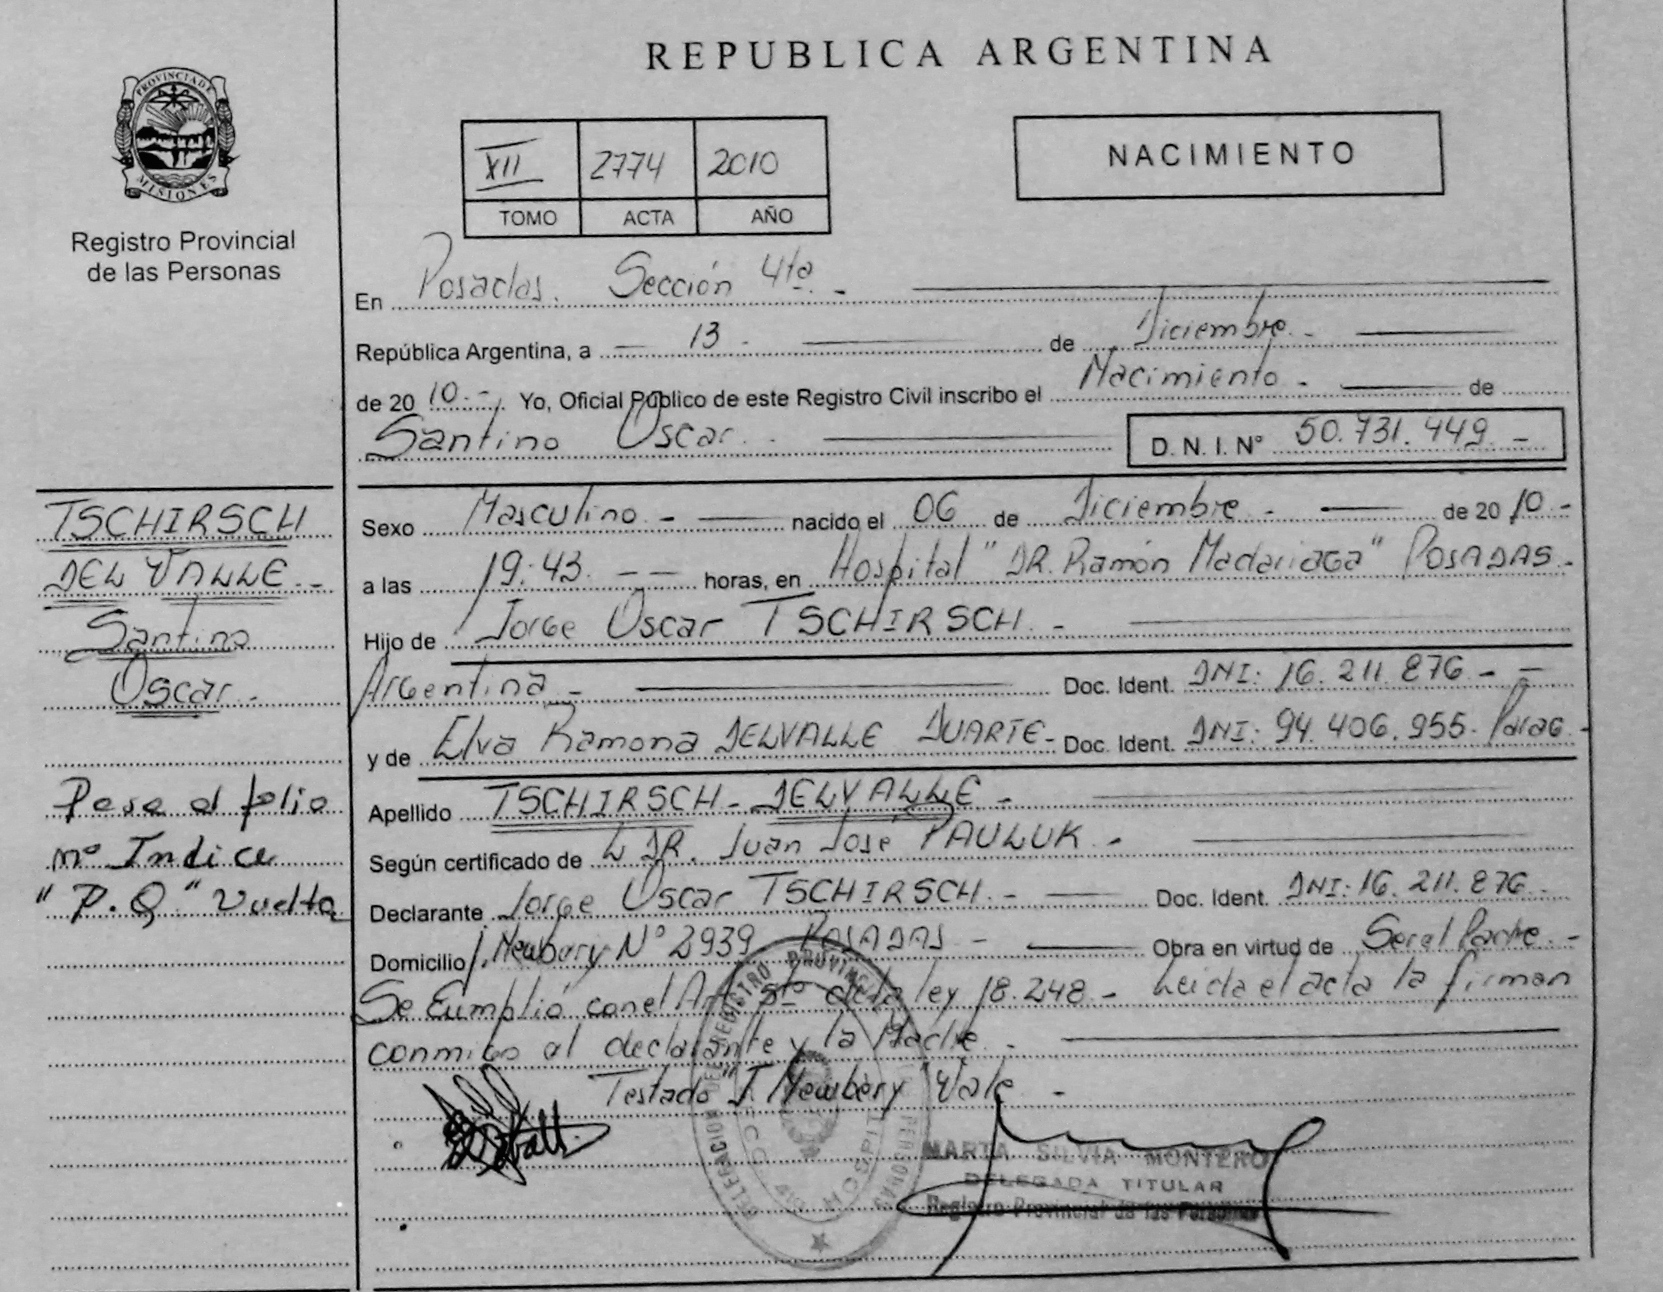 REPUBLICA ARGENTINA
PROVINCIA DE MISIONES
Registro Provincial
de las Personas
XII 2774 2010
TOMO ACTA AÑO
NACIMIENTO
En Posadas. Sección 4ta. -
República Argentina, a — 13 - de Diciembre. -
de 20 10.- Yo, Oficial Público de este Registro Civil inscribo el Nacimiento - de
Santino Oscar. D. N. I. N° 50.731.449 -
Sexo Masculino - nacido el 06 de Diciembre - de 20 10 -
a las 19:43. - - horas, en Hospital "DR. Ramón Madariaga" POSADAS -
Hijo de Jorge Oscar TSCHIRSCH -
Argentina - Doc. Ident. DNI: 16.211.876 - -
y de Elva Ramona DELVALLE DUARTE - Doc. Ident. DNI: 94.406.955. Parag -
Apellido TSCHIRSCH - DELVALLE -
Según certificado de L DR. Juan José PAULUK -
Declarante Jorge Oscar TSCHIRSCH - Doc. Ident. DNI: 16.211.876
Domicilio J. Newbery N° 2939 POSADAS - Obra en virtud de Ser el Padre -
Se Cumplió con el Art 5to de la ley 18.248 - Leida el acta la firman
conmigo al declarante y la Madre -
Testado "J Newbery" Vale -
TSCHIRSCH
DEL VALLE -
Santino
Oscar -
Pase al folio
Nº Indice
"P.Q" Vuelta
DELEGACION DEL REGISTRO PROVINCIAL DE LAS PERSONAS
SECC 4ta HOSPIT
MARTA SILVIA MONTERO
DELEGADA TITULAR
Registro Provincial de las Personas